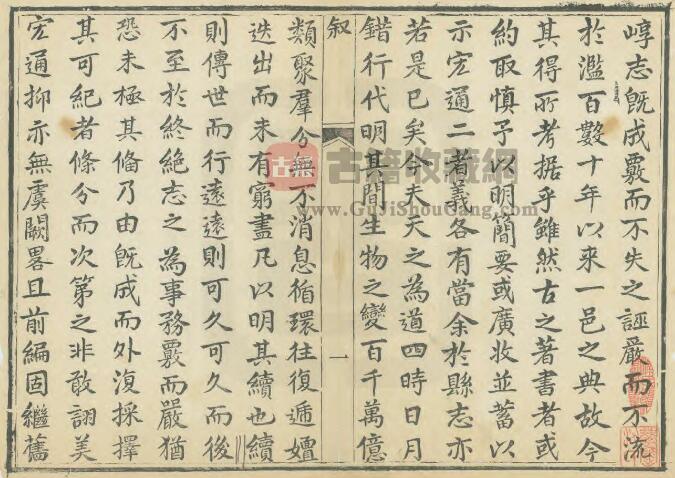 崞志既成覈而不失之誣嚴而不流
於濫百數十年以來一邑之典故今
其得所考据乎雖然古之著書者或
約取慎予以明簡要或廣收並蓄以
示宏通二者義各有當余於縣志亦
若是已矣今夫天之為道四時日月
錯行代明其間生物之變百千萬億
叙 一
類聚羣分無不消息循環往復遞嬗
迭出而未有窮盡凡以明其續也續
則傳世而行遠遠則可久可久而後
不至於終絶志之為事務覈而嚴猶
恐未極其俻乃由既成而外復採擇
其可紀者條分而次第之非敢詡美
宏通抑亦無虞闕畧且前編固繼舊
古籍收藏網
www.GuJiShouCang.com